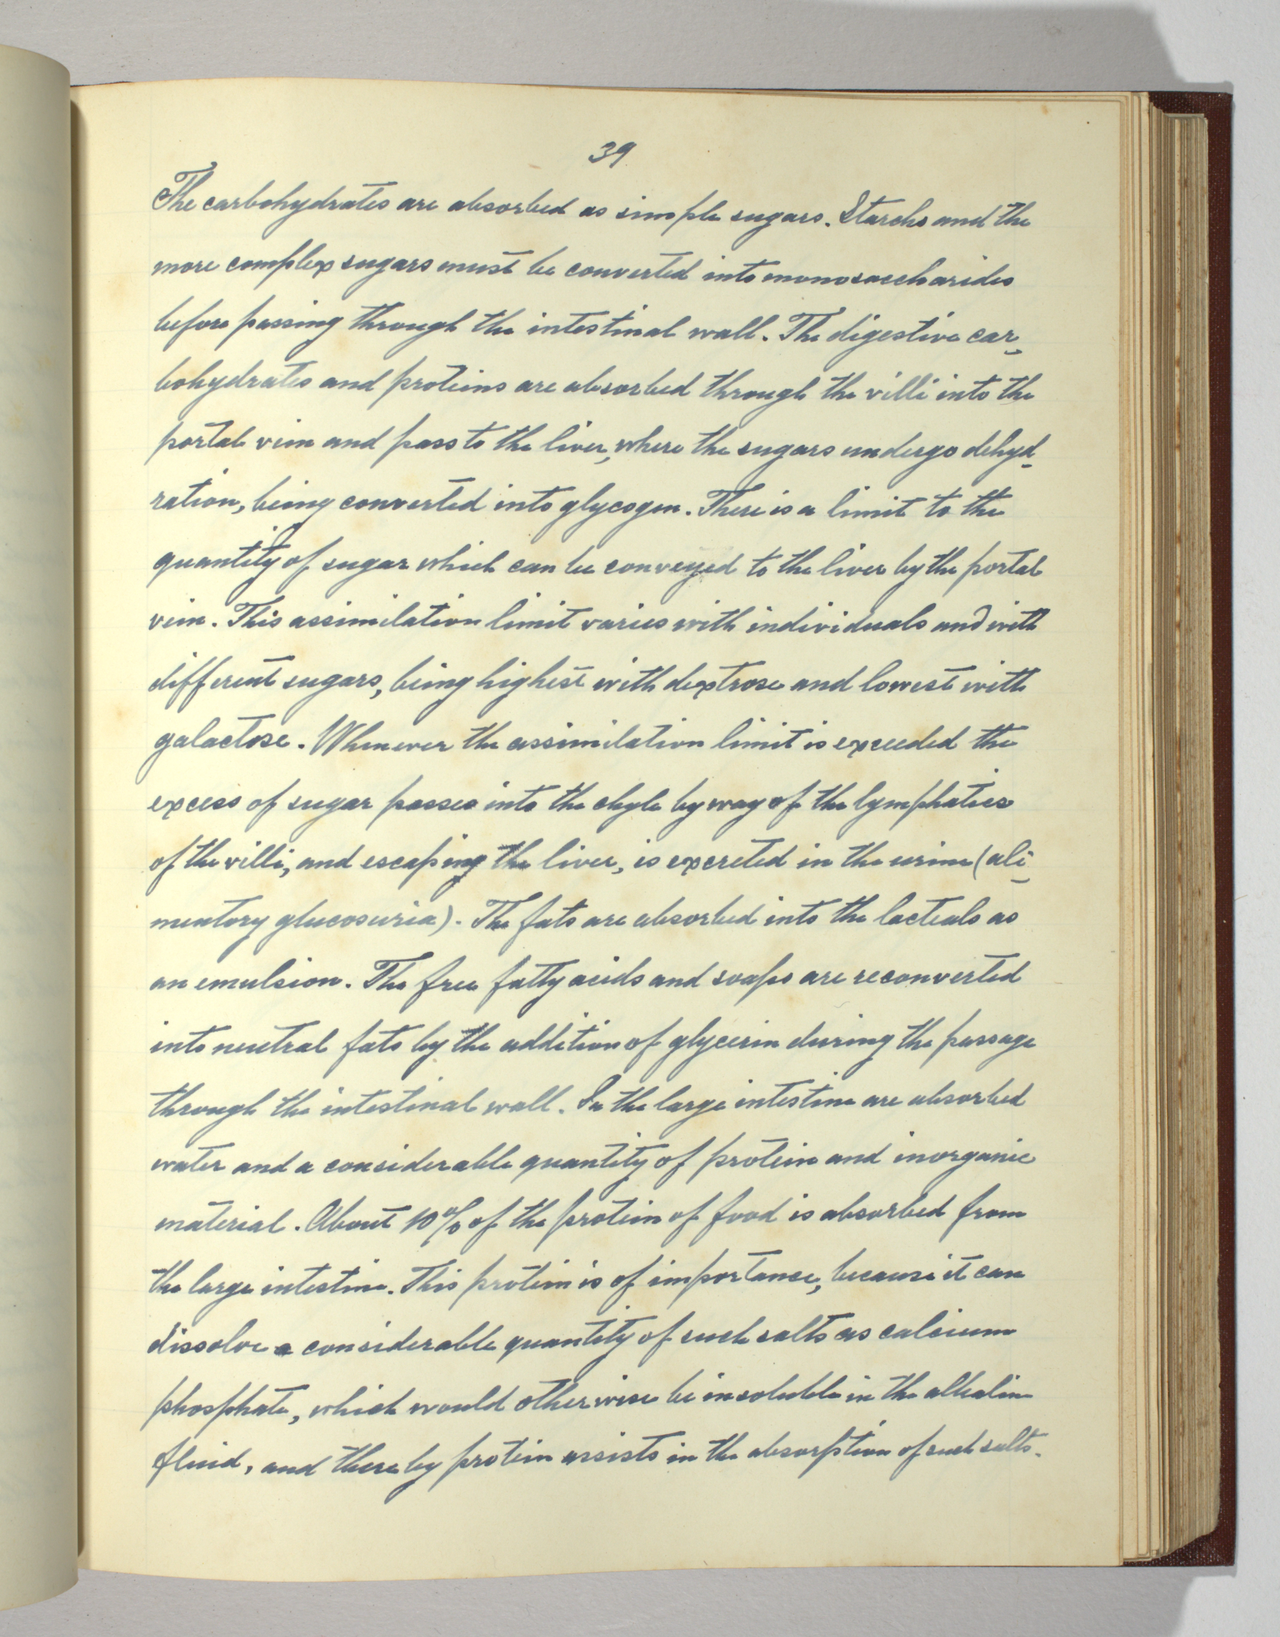 39
The carbohydrates are absorbed as simple sugars. Starchs and the
more complex sugars must be converted into monosaccharides
before passing through the intestinal wall. The digestive car-
bohydrates and proteins are absorbed through the villi into the
portal vein and pass to the liver, where the sugars undergo dehyd-
ration, being converted into glycogen. There is a limit to the
quantity of sugar which can be conveyed to the liver by the portal
vein. This assimilation limit varies with individuals and with
different sugars, being highest with dextrose and lowest with
galactose. Whenever the assimilation limit is exceeded the
excess of sugar passes into the chyle by way of the lymphatics
of the villi, and escaping the liver, is excreted in the urine (ali-
mentory glucosuria). The fats are absorbed into the lacteals as
an emulsion. The free fatty acids and soaps are reconverted
into neutral fats by the addition of glycerin during the passage
through the intestinal wall. In the large intestine are absorbed
water and a considerable quantity of protein and inorganic
material. About 10% of the protein of food is absorbed from
the large intestine. This protein is of importance, because it can
dissolve a considerable quantity of such salts as calcium
phosphate, which would otherwise be insoluble in the alkaline
fluid, and thereby protein assists in the absorption of such salts.